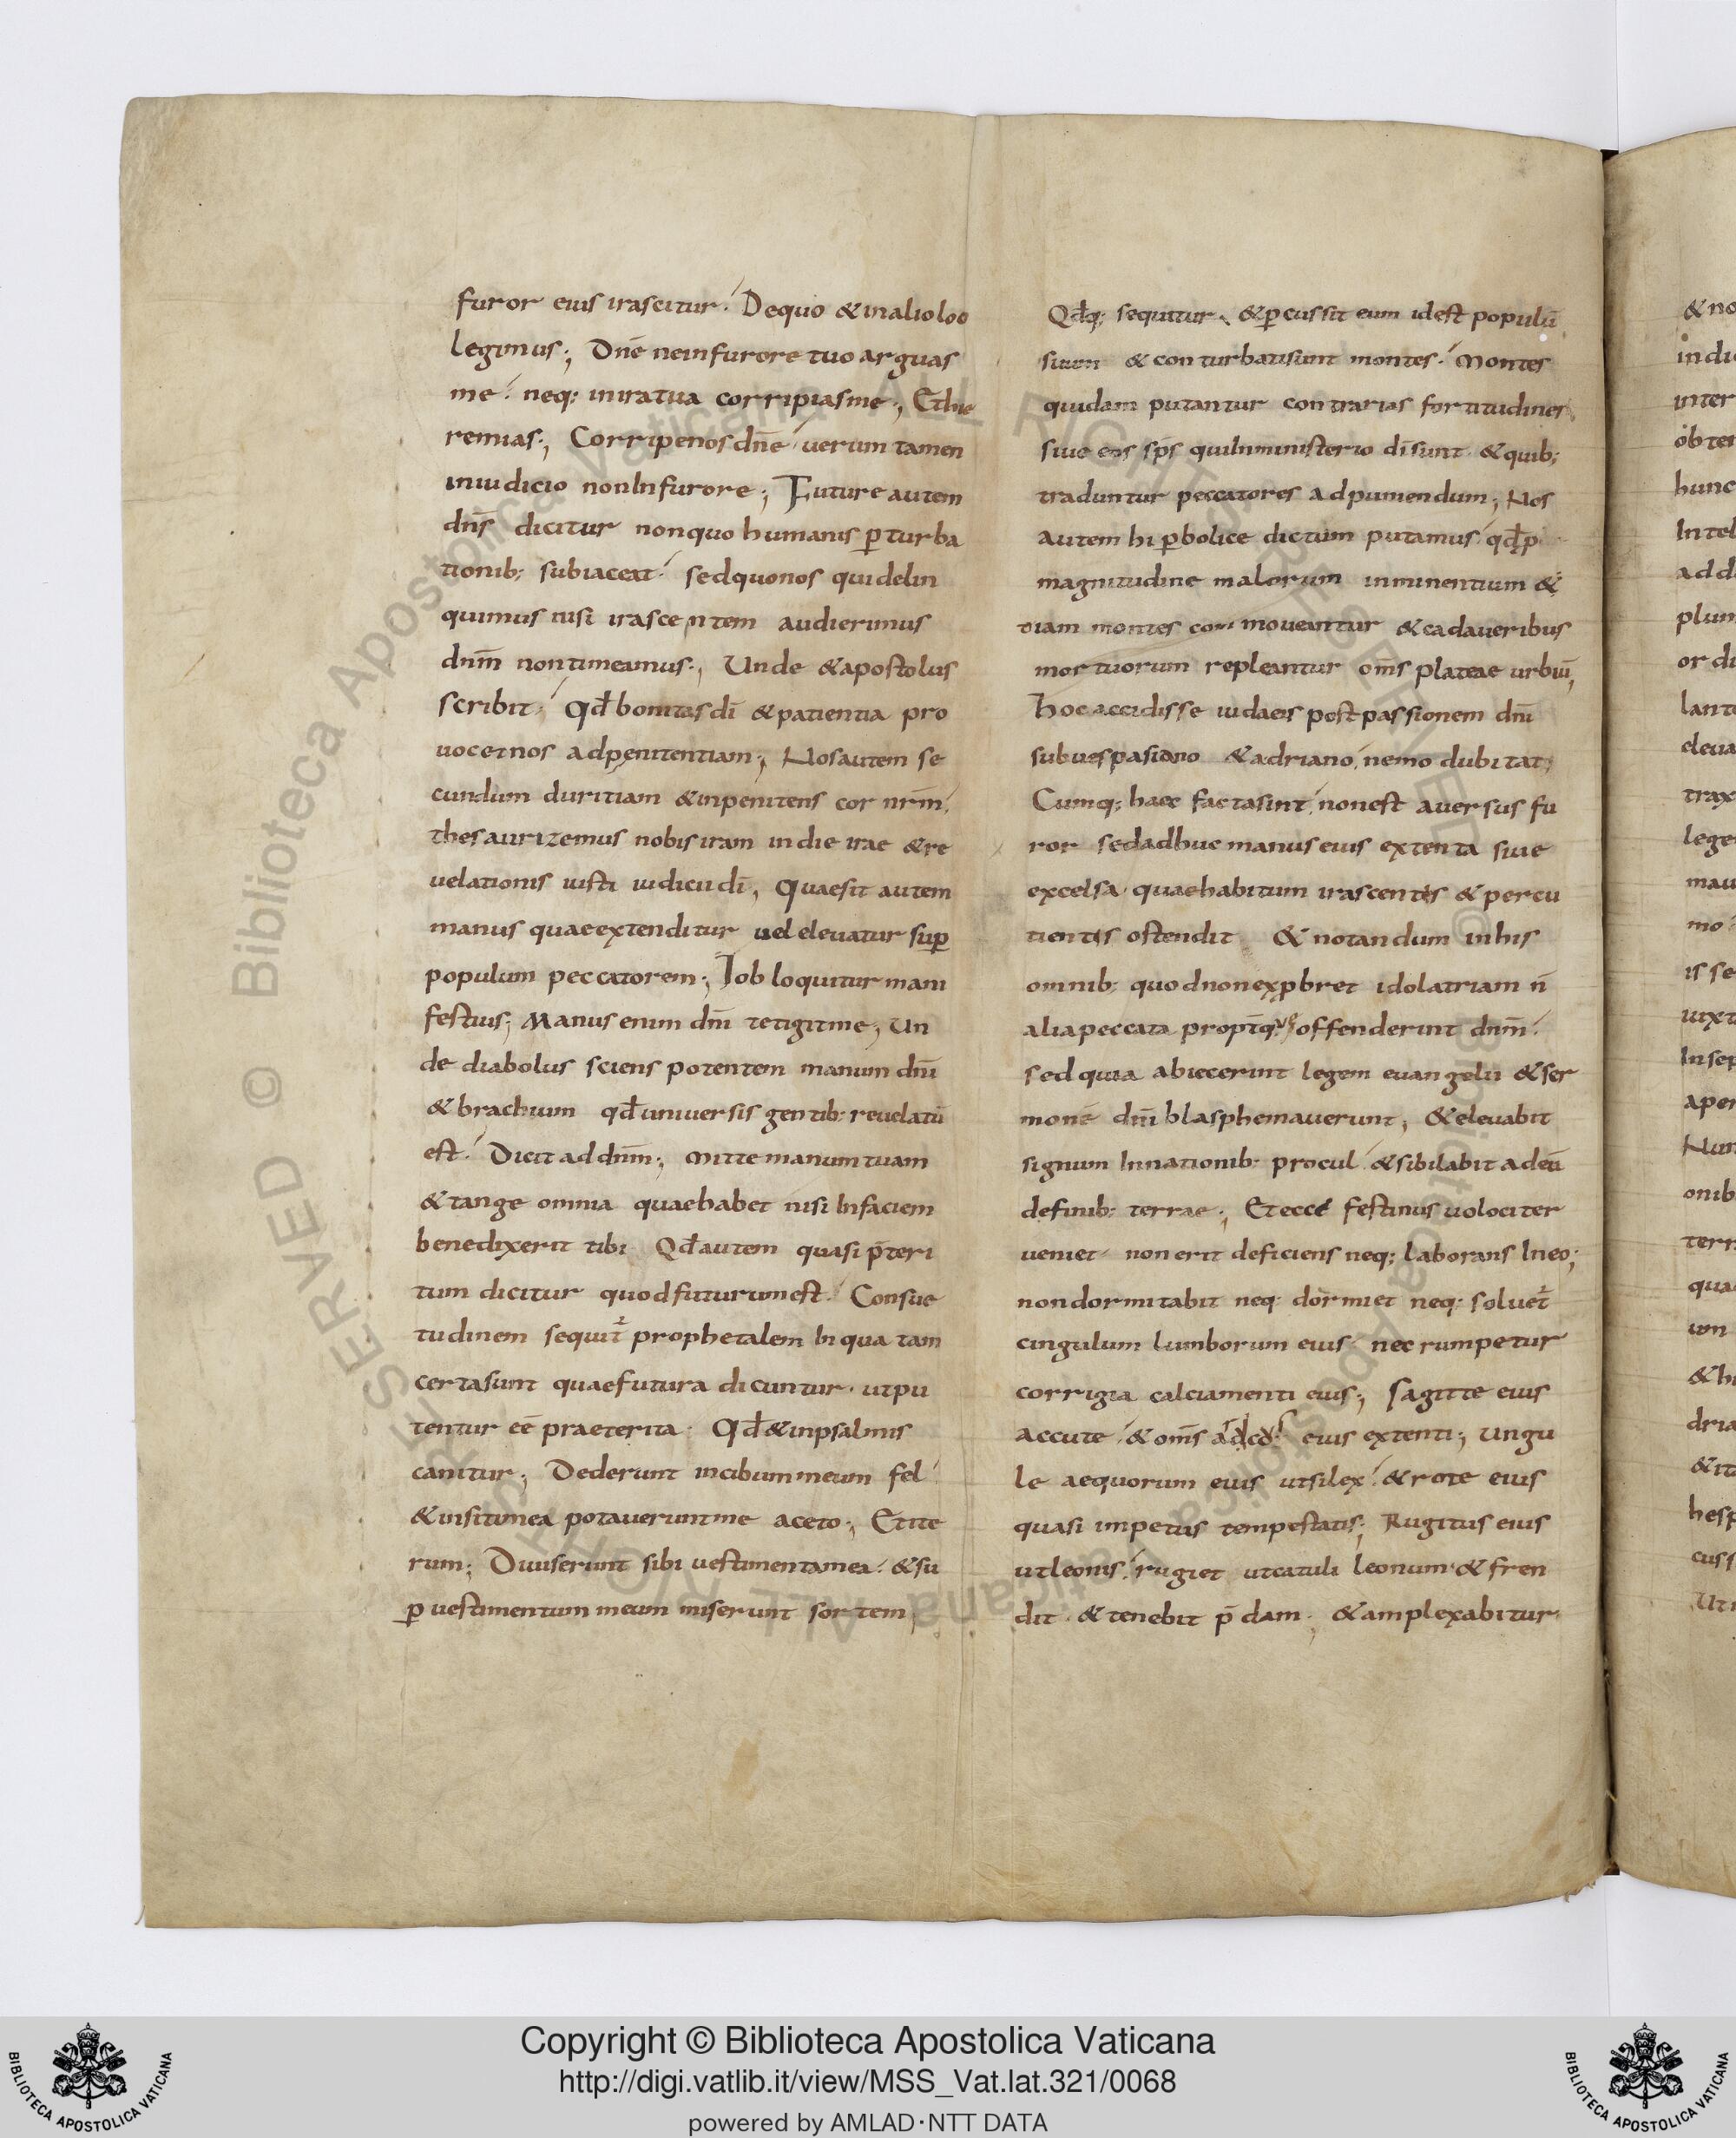 furor eius irascitur. De quo & in alio loco
legimus; Dn̄e ne in furore tuo arguas
me. neq; in ira tua corripias me; Et hie
remias; Corripe nos dn̄e uerum tamen
in iudicio non In furore; Future autem
dn̄s dicitur non quo humanis ꝑturba
tionib; subiaceat. sed quo nos qui delin
quimus nisi irascentem audierimus
dnm̄ non timeamus; Unde & apostolus
scribit. Qđ bonitas dī & patientia pro
uocet nos ad penitentiam; Nos autem se
cundum duritiam & inpenitens cor nrm̄.
thesaurizemus nobis iram in die irae & re
uelationis iusti iudicii dī, Quaesit autem
manus quae extenditur uel eleuatur suꝑ
populum peccatorem; Iob loquitur mani
festius; Manus enim dnī tetigit me; Un
de diabolus sciens potentem manum dnī
& brachium qđ uniuersis gentib; reuelatū
est. Dicit ad dnm̄; Mitte manum tuam
& tange omnia quae habet nisi In faciem
benedixerit tibi Qđ autem quasi p̄teri
tum dicitur quod futurum est. Consue
tudinem sequit̄ prophetalem In qua tam
certa sunt quae futura dicuntur. ut pu
tentur eē praeterita. Qđ & in psalmis
canitur; Dederunt in cibum meum fel
& in siti mea potauerunt me aceto; Et ite
rum; Diuiserunt sibi uestimenta mea. & su
ꝑ uestimentum meum miserunt sortem;
Qđq; sequitur. & ꝑcussit eum id est populū
suum & conturbati sunt montes. Montes
quidam putantur contrarias fortitudines
siue eos sp̄s qui In ministerio dī sunt & quib;
traduntur peccatores ad puniendum; Nos
autem hiꝑbolice dictum putamus qđ p
magnitudine malorum inminentium &
iam montes commoueantur & cadaueribus
mortuorum repleantur om̄s plateae urbiū;
Hoc accidisse iudaeis post passionem dnī
sub uespasiano & adriano, nemo dubitat;
Cumq; haec facta sint, non est auersus fu
ror sed adhuc manus eius extenta siue
excelsa quae habitum irascentis & percu
tientis ostendit & notandum in his
omnib; quod non exprobret idolatriam n̄
alia peccata offenderint dnm̄.
sed quia abiecerint legem euangelii & ser
monē dnī blasphemauerunt; & eleuabit
signum In nationib; procul & sibilabit ad eū
de finib; terrae; Et ecce festinus uolociter
ueniet. non erit deficiens neq; laborans In eo;
non dormitabit neq; dormiet neq; soluet̄
cingulum lumborum eius nec rumpetur
corrigia calciamenti eius; Sagitte eius
accute & om̄s eius extenti; Ungu
le aequorum eius ut silex. & rote eius
quasi impetus tempestatis; Rugitus eius
ut leonis, rugiet ut catuli leonum & fren
dit. & tenebit p̄dam; & amplexabitur
Copyright © Biblioteca Apostolica Vaticana
http://digi.vatlib.it/view/MSS_Vat.lat.321/0068
powered by AMLAD·NTT DATA
BIBLIOTECA APOSTOLICA VATICANA
BIBLIOTECA APOSTOLICA VATICANA